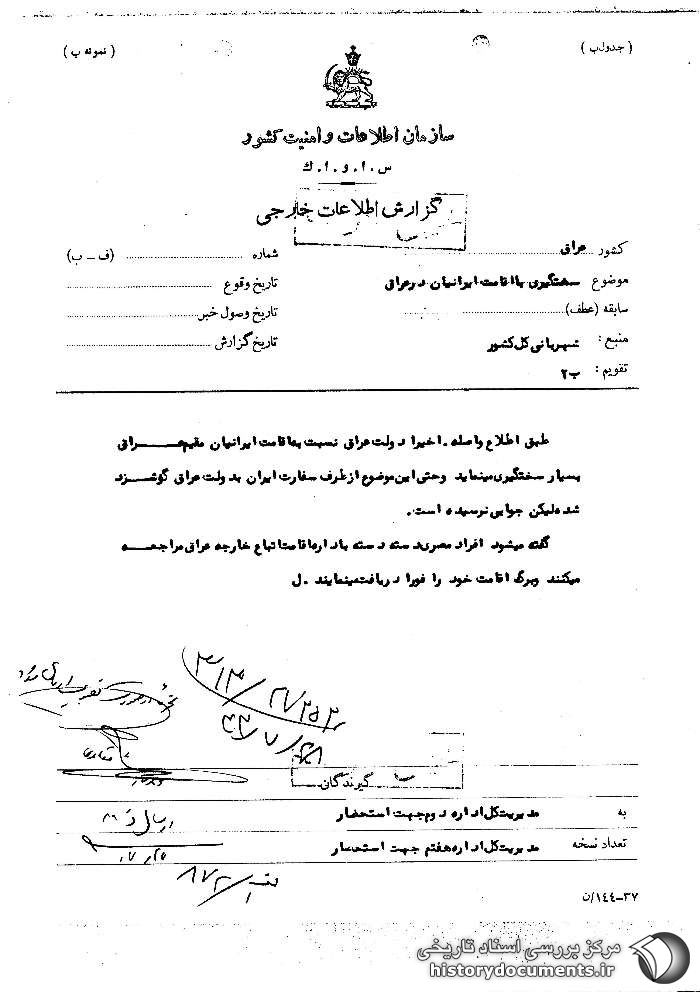 ( جدول ب )
( نمونه ب )
سازمان اطلاعات و امنیت کشور
س . ا . و . ا . ك
گزارش اطلاعات خارجی
کشور عراق
شماره (ف - ب)
موضوع سختگیری با اقامت ایرانیان در عراق
تاریخ وقوع
سابقه (عطف)
تاریخ وصول خبر
منبع : شهربانی کل کشور
تاریخ گزارش
تقویم : ب ۲
طبق اطلاع واصله . اخیرا دولت عراق نسبت به اقامت ایرانیان مقیم عراق
بسیار سختگیری مینماید و حتی این موضوع از طرف سفارت ایران به دولت عراق گوشزد
شده لیکن جوابی نرسیده است .
گفته میشود افراد مصری دسته دسته با اداره اقامت اتباع خارجه عراق مراجعه
میکنند و برگ اقامت خود را فورا دریافت مینمایند . ل
۳۱۳/
۴۳/۷/۲۸
گیرندگان
به مدیریت کل اداره دوم جهت استحضار
ارسال شد
تعداد نسخه مدیریت کل اداره هفتم جهت استحضار
۳۷-۱٤٤/ن
مرکز بررسی اسناد تاریخی
historydocuments.ir